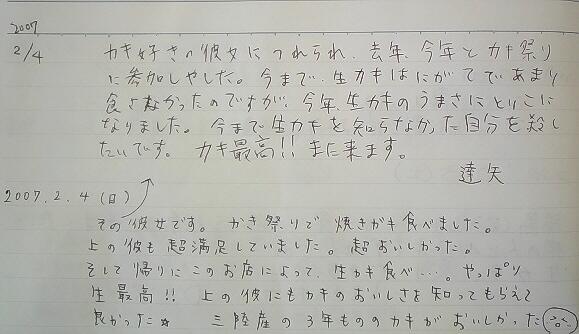 2007
2/4 カキ好きの彼女につれられ、去年、今年とカキ祭り
に参加しやした。今まで、生カキはにがてであまり
食さなかったのですが、今年、生カキのうまさにとりこに
なりました。今まで生カキを知らなかった自分を殺し
たいです。カキ最高!!また来ます。
達矢
2007.2.4(日)
その彼女です。かき祭りで焼きガキ食べました。
上の彼も超満足していました。超おいしかった。
そして帰りにこのお店によって、生カキ食べ…。やっぱり
生最高!!上の彼にもカキのおいしさを知ってもらえて
良かった☆ 三陸産の3年もののカキがおいしかった